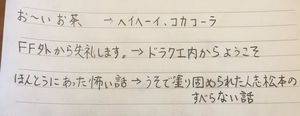 お〜いお茶 → ヘイヘーイ、コカコーラ
FF外から失礼します。→ ドラクエ内からようこそ
ほんとうにあった怖い話 → うそで塗り固められた人志松本の
すべらない話